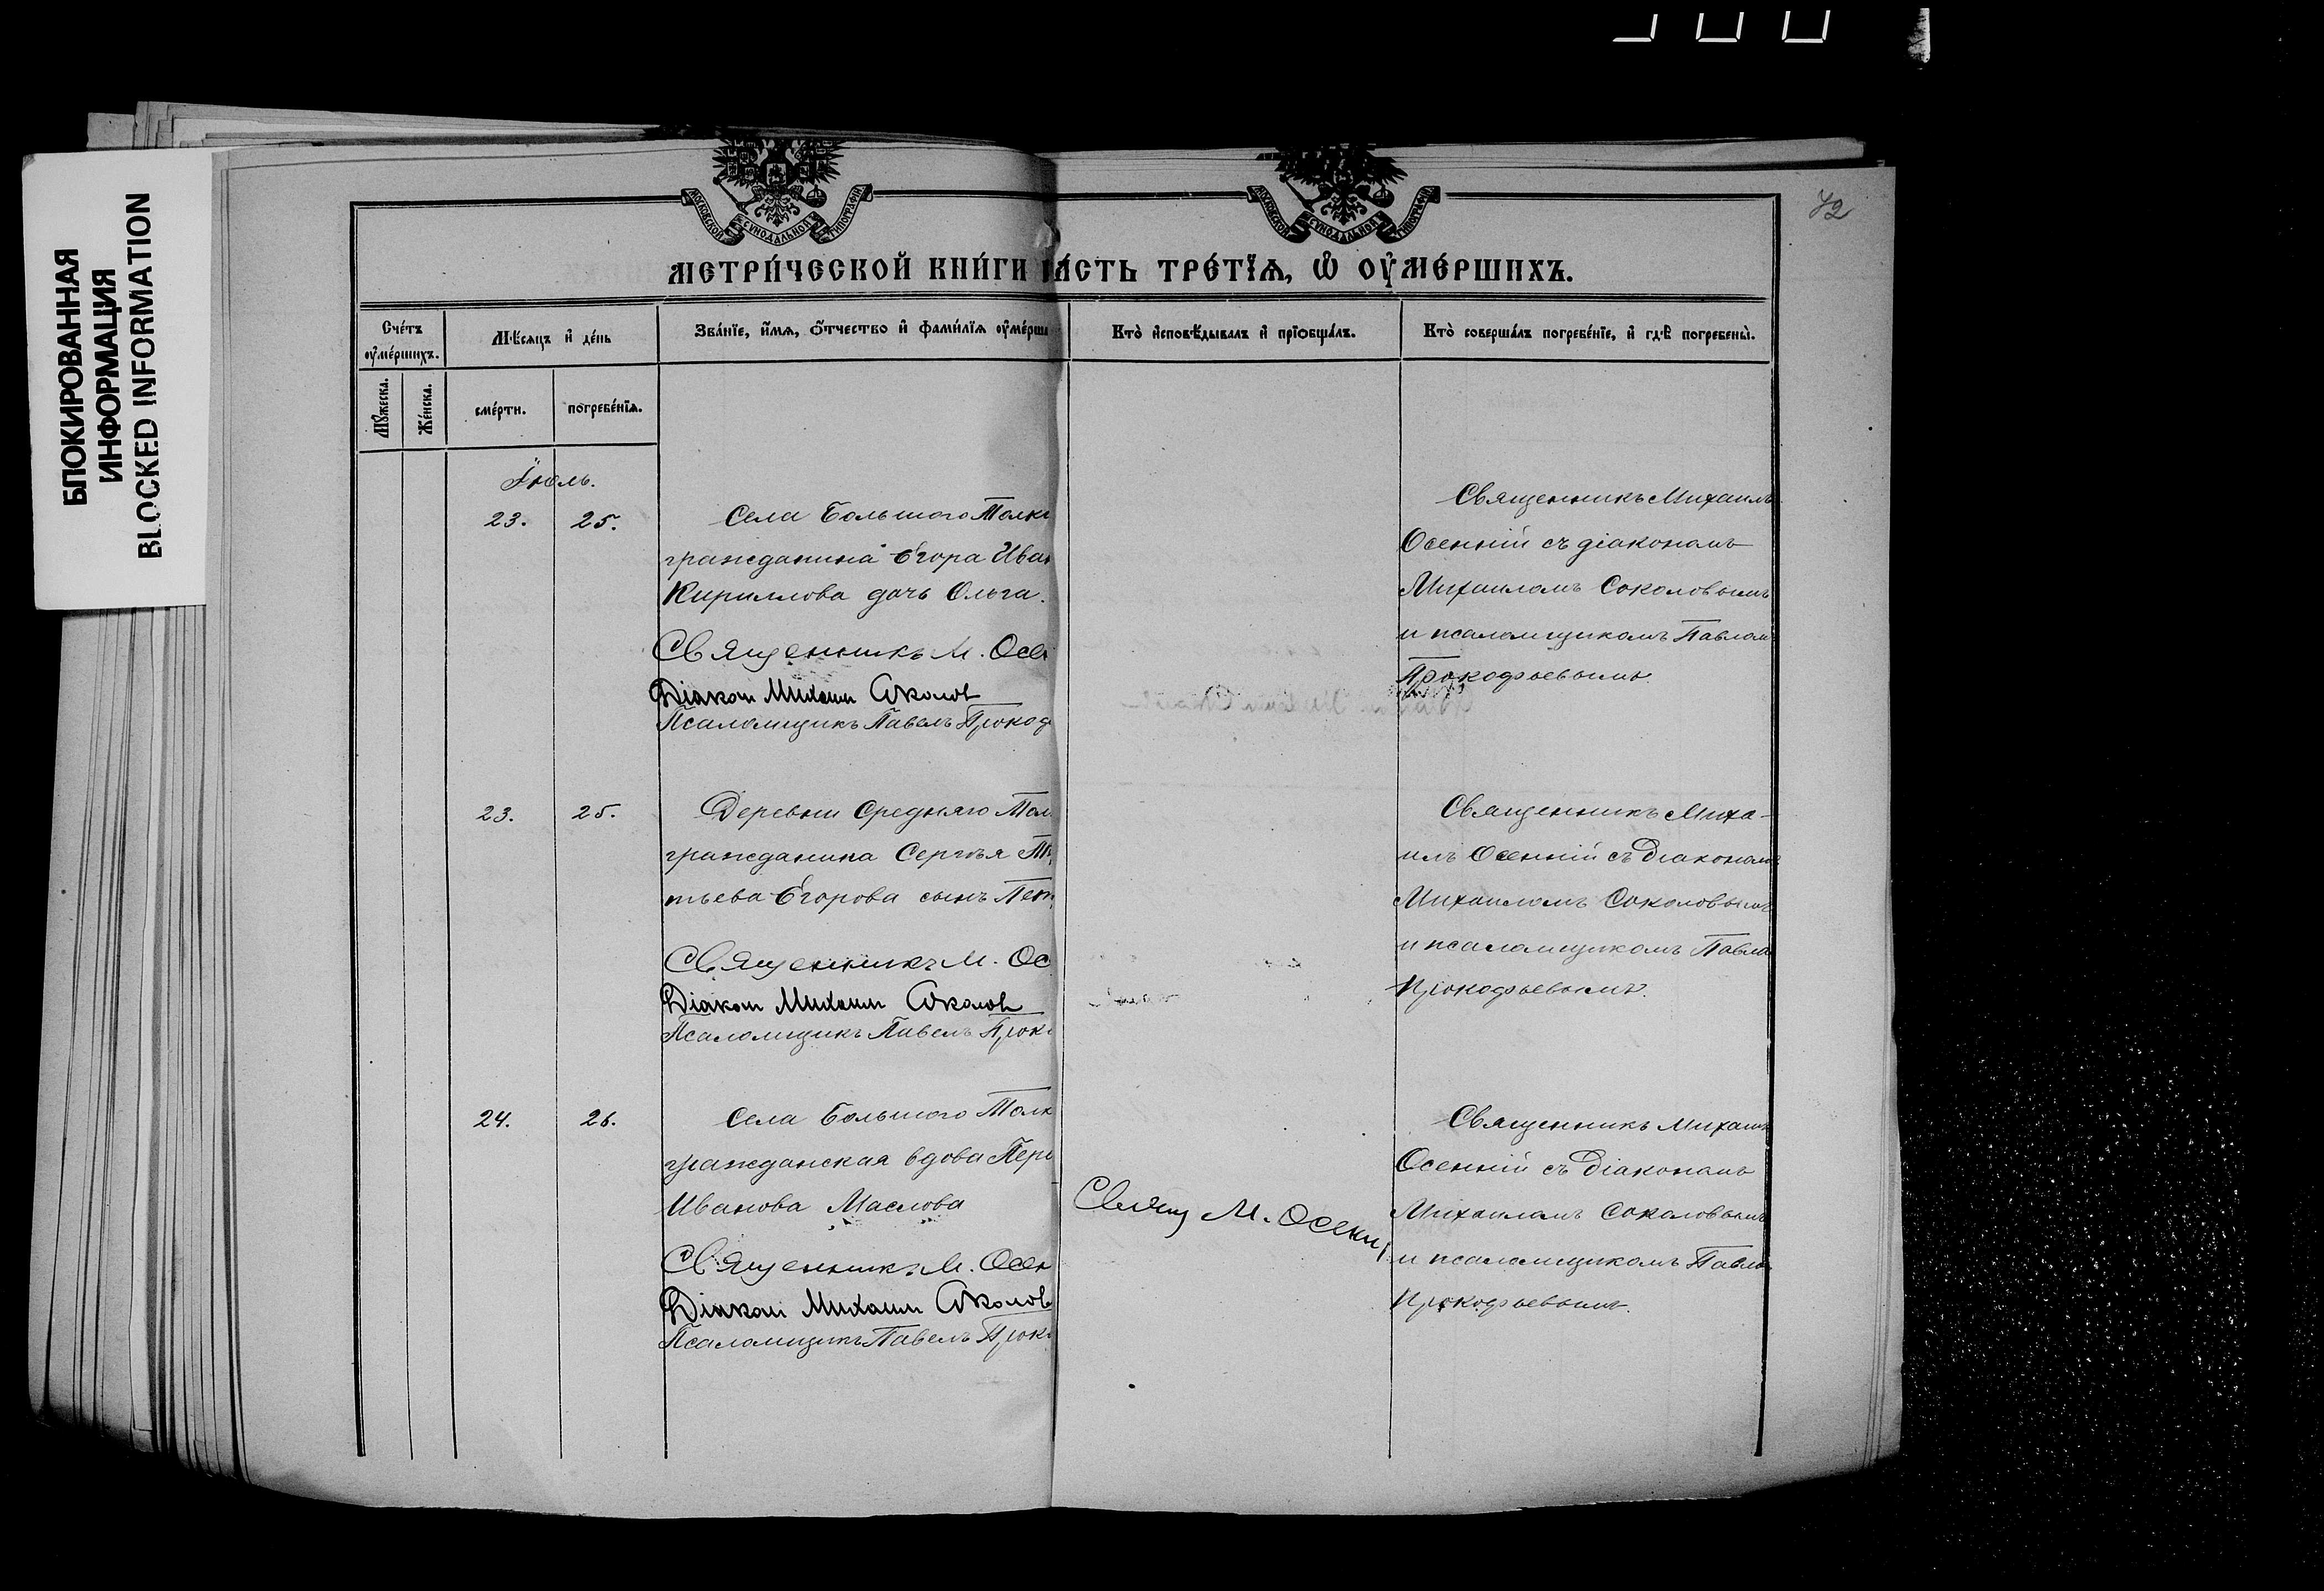 БЛОКИРОВАННАЯ
ИНФОРМАЦИЯ
BLOCKED INFORMATION
72
МОСКОВСКОЙ СѴНОДАЛЬНОЙ ТИПОГРАФІИ
МОСКОВСКОЙ СѴНОДАЛЬНОЙ ТИПОГРАФІИ
МЕТРИ́ЧЕСКОЙ КНИ́ГИ ЧА́СТЬ ТРЕ́ТЇѦ, Ѽ ОУ҆МЕ́РШИХЪ.
Сче́тъ оу҆ме́ршихъ.
Мѣ́сяцъ и҆ де́нь
Зва́нїе, и҆́мѧ, ѻ҆́тчество и҆ фами́лїѧ оу҆ме́рша
Кто̀ и҆сповѣ́дывалъ и҆ прїѻбща́лъ.
Кто̀ соверша́лъ погребе́нїе, и҆ гдѣ̀ погребены̀.
Мꙋ́жеска.
Же́нска.
сме́рти.
погребе́нїѧ.
Іюль.
23. 25.
Села Большого Толк
гражданина Егора Иван
Кириллова дочь Ольга.
Священникъ М. Осе
Діакон Михаил Соколов
Псаломщикъ Павелъ Прокоф
Священникъ Михаилъ
Осенній съ діакономъ
Михаиломъ Соколовымъ
и псаломщикомъ Павлом
Прокофьевымъ.
23. 25.
Деревни Средняго Тол
гражданина Сергѣя
тьева Егорова сынъ Пет
Священникъ М. Ос
Діакон Михаил Соколов
Псаломщикъ Павелъ Прок
Священникъ Миха-
илъ Осенній съ Діакономъ
Михаиломъ Соколовымъ
и псаломщикомъ Павло
Прокофьевымъ.
24. 26.
Села Большого Толк
гражданская вдова
Иванова Маслова
Священникъ М. Осен
Діакон Михаил Соколов
Псаломщикъ Павелъ Прок
Свящ М. Осенн
Священникъ Михаилъ
Осенній съ Діакономъ
Михаиломъ Соколовымъ
и псаломщикомъ Павло
Прокофьевымъ.